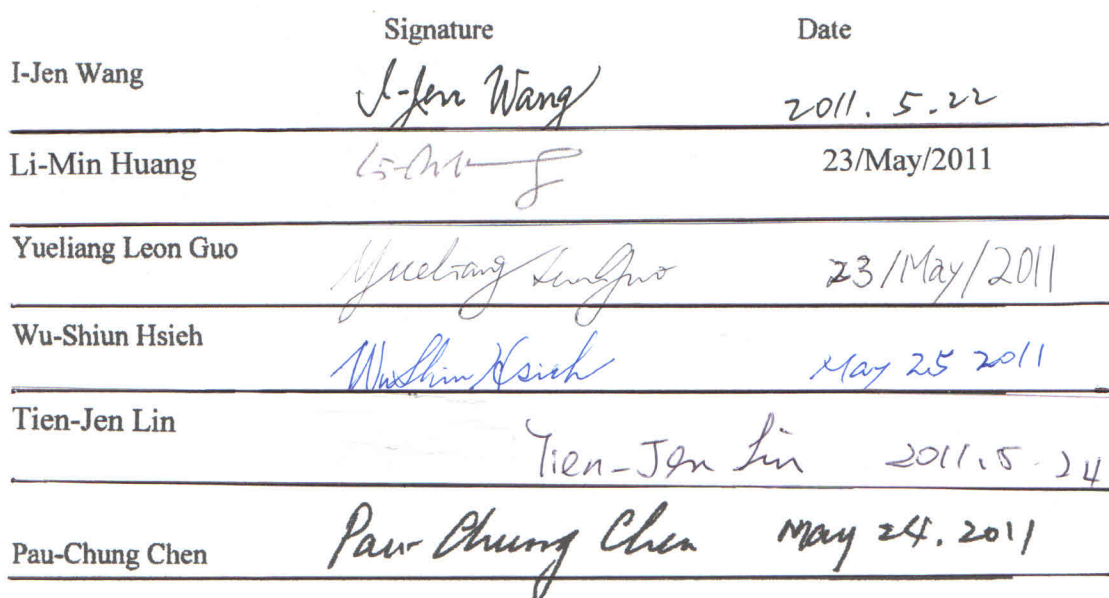 Signature Date
I-Jen Wang I-Jen Wang 2011. 5. 22
Li-Min Huang 23/May/2011
Yueliang Leon Guo Yueliang Leon Guo 23/May/2011
Wu-Shiun Hsieh WuShiun Hsieh May 25 2011
Tien-Jen Lin Tien-Jen Lin 2011. 5. 24
Pau-Chung Chen Pau-Chung Chen May 24. 2011